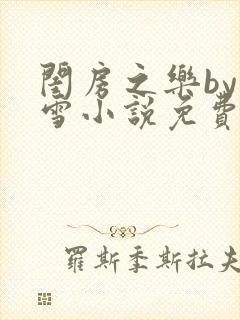 閨房之樂by
雪小說免費
羅斯季斯拉夫